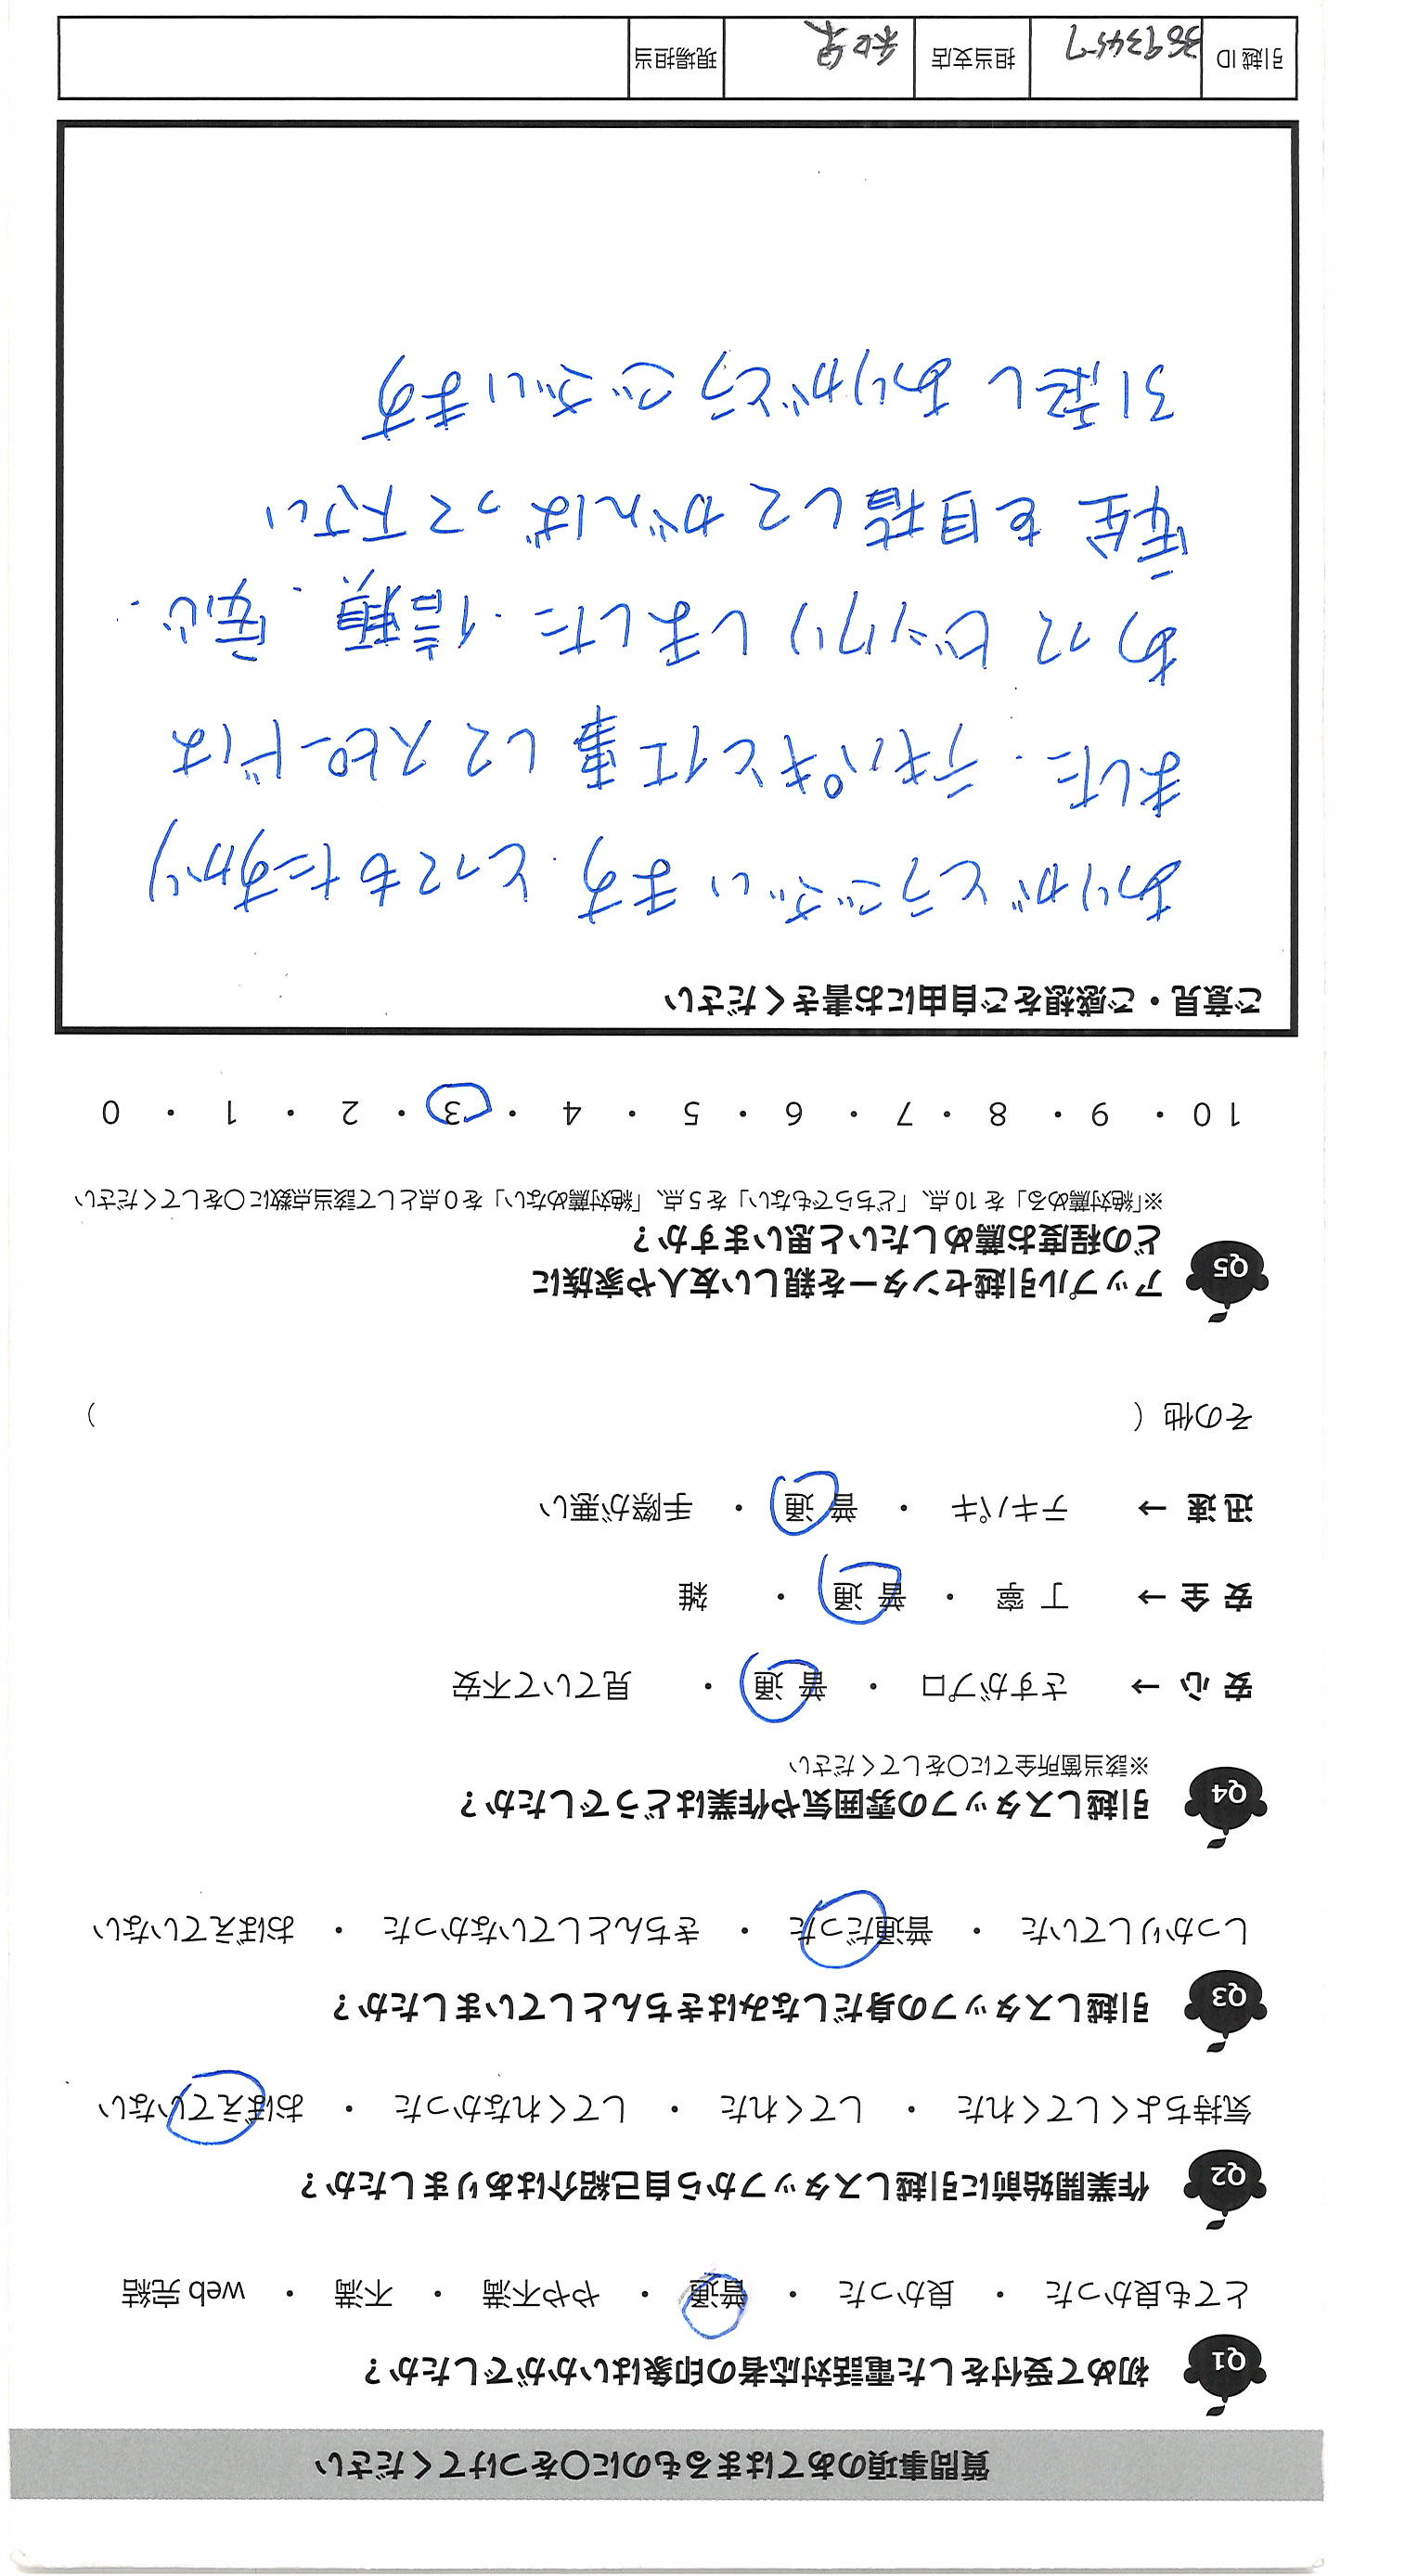 質問事項のあてはまるものに〇をつけてください
Q1 初めて受付をした電話対応者の印象はいかがでしたか？
とても良かった ・ 良かった ・ 普通 ・ やや不満 ・ 不満 ・ web 完結
Q2 作業開始前に引越しスタッフから自己紹介はありましたか？
気持ちよくしてくれた ・ してくれた ・ してくれなかった ・ おぼえていない
Q3 引越しスタッフの身だしなみはきちんとしていましたか？
しっかりしていた ・ 普通だった ・ きちんとしていなかった ・ おぼえていない
Q4 引越しスタッフの雰囲気や作業はどうでしたか？
※該当箇所全てに〇をしてください
安 心 → さすがプロ ・ 普 通 ・ 見ていて不安
安 全 → 丁 寧 ・ 普 通 ・ 雑
迅 速 → テキパキ ・ 普 通 ・ 手際が悪い
その他（ ）
Q5 アップル引越センターを親しい友人や家族に
どの程度お薦めしたいと思いますか？
※「絶対薦める」を 10 点、「どちらでもない」を 5 点、「絶対薦めない」を 0 点として該当点数に〇をしてください
10 ・ 9 ・ 8 ・ 7 ・ 6 ・ 5 ・ 4 ・ 3 ・ 2 ・ 1 ・ 0
ご意見・ご感想をご自由にお書きください
ありがとうございます.とってもたすかり
ました.テキパキと仕事してスピードは
あってビックリしました.信頼.安心.
安全を目指してがんばって下さい
引越しありがとうございます
引越 ID 3693457 担当支店 現場担当